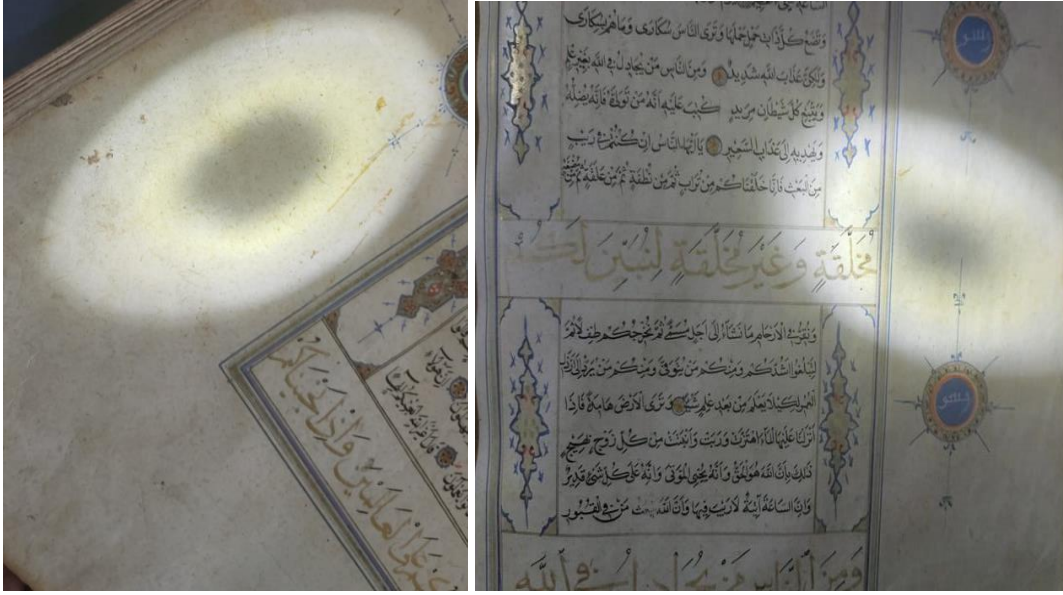 على العالمين واذ انجيناكم
وتضع كل ذات حمل حملها وترى الناس سكارى وما هم بسكارى
ولكن عذاب الله شديد ومن الناس من يجادل في الله بغير علم
ويتبع كل شيطان مريد كتب عليه انه من تولاه فانه يضله
ويهديه الى عذاب السعير يا ايها الناس ان كنتم في ريب
من البعث فانا خلقناكم من تراب ثم من نطفة ثم من علقة ثم من مضغة
مخلقة وغير مخلقة لنبين لكم
ونقر في الارحام ما نشاء الى اجل مسمى ثم نخرجكم طفلا ثم
لتبلغوا اشدكم ومنكم من يتوفى ومنكم من يرد الى ارذل
العمر لكيلا يعلم من بعد علم شيئا وترى الارض هامدة فاذا
انزلنا عليها الماء اهتزت وربت وانبتت من كل زوج بهيج
ذلك بان الله هو الحق وانه يحيي الموتى وانه على كل شيء قدير
وان الساعة آتية لا ريب فيها وان الله يبعث من في القبور
ومن الناس من يجادل في الله